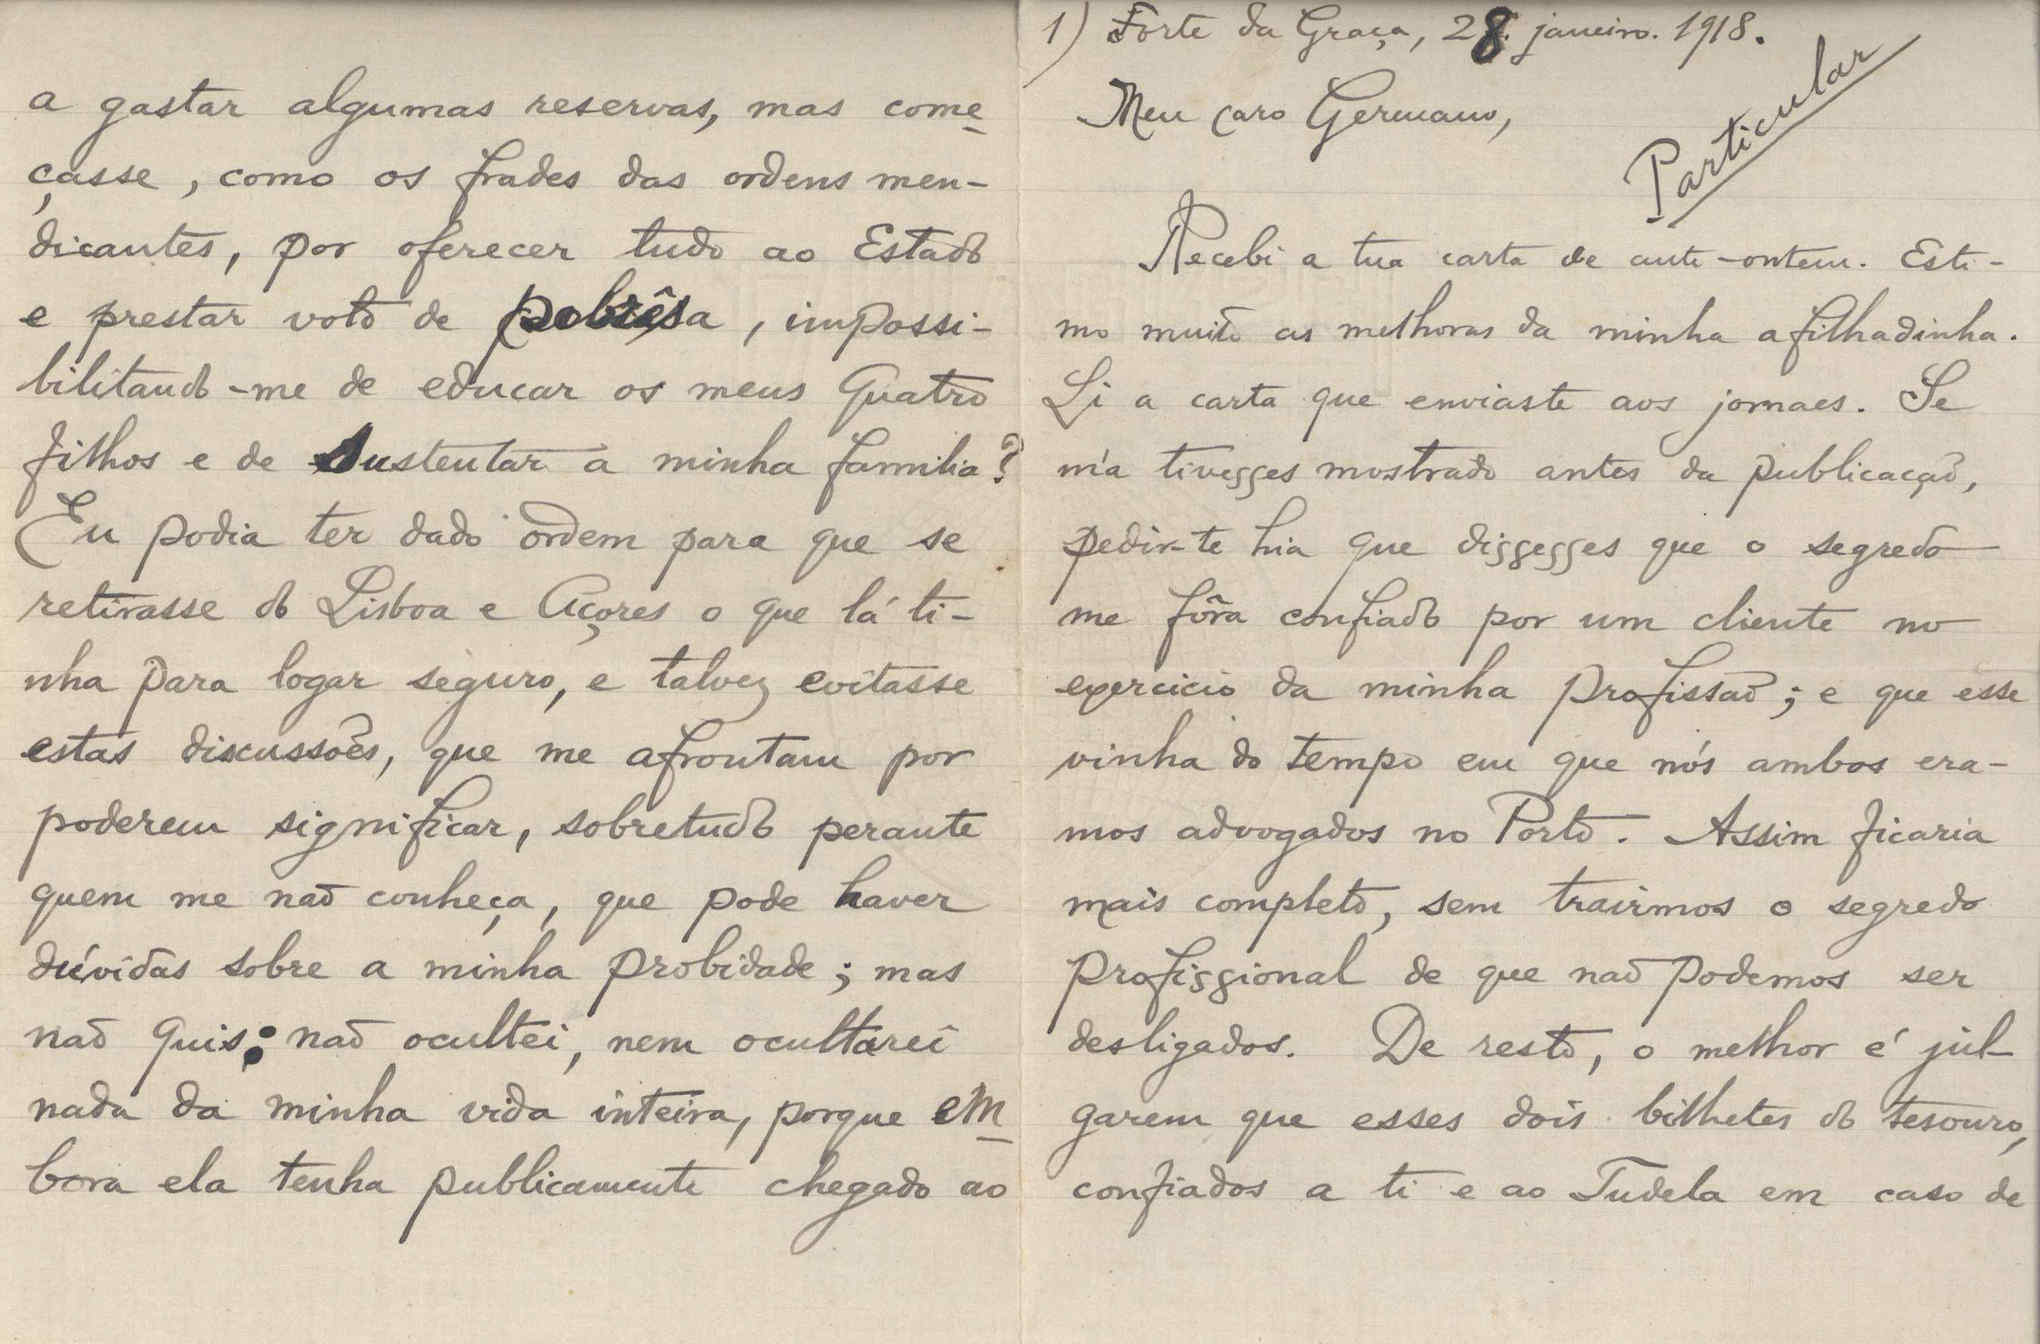 1) Forte da Graça, 28. janeiro. 1918.
Particular
Meu caro Germano,
Recebi a tua carta de ante-ontem. Esti-
mo muito as melhoras da minha afilhadinha.
Li a carta que enviaste aos jornaes. Se
m'a tivesses mostrado antes da publicação,
pedir-te hia que dissesses que o segredo
me fôra confiado por um cliente no
exercicio da minha profissão; e que esse
vinha do tempo em que nós ambos era-
mos advogados no Porto. Assim ficaria
mais completo, sem trairmos o segredo
profissional de que não podemos ser
desligados. De resto, o melhor é jul-
garem que esses dois bilhetes do tesouro,
confiados a ti e ao Tudela em caso de
a gastar algumas reservas, mas come-
çasse, como os frades das ordens men-
dicantes, por oferecer tudo ao Estado
e prestar voto de pobrêsa, impossi-
bilitando-me de educar os meus quatro
filhos e de sustentar a minha familia?
Eu podia ter dado ordem para que se
retirasse de Lisboa e Açores o que lá ti-
nha para logar seguro, e talvez evitasse
estas discussões, que me afrontam por
poderem significar, sobretudo perante
quem me não conheça, que pode haver
dúvidas sobre a minha probidade; mas
não quis; não ocultei, nem ocultarei
nada da minha vida inteira, porque em-
bora ela tenha publicamente chegado ao